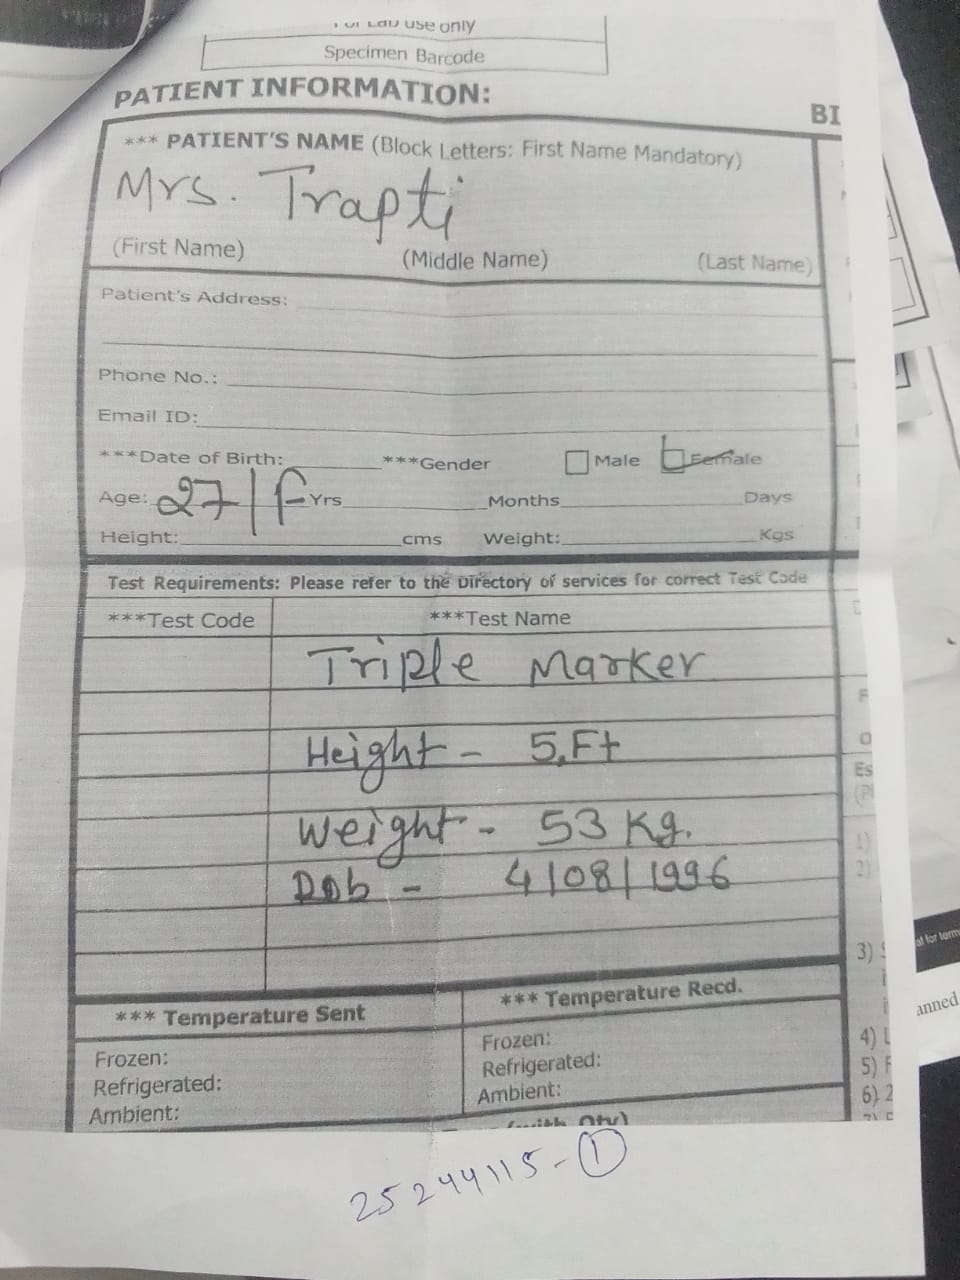 For Lab use only
Specimen Barcode
PATIENT INFORMATION:
BI
*** PATIENT'S NAME (Block Letters: First Name Mandatory)
Mrs. Trapti
(First Name) (Middle Name) (Last Name)
Patient's Address:
Phone No.:
Email ID:
***Date of Birth: ***Gender Male Female
Age: 27/F Yrs Months Days
Height: cms Weight: Kgs
Test Requirements: Please refer to the Directory of services for correct Test Code
***Test Code ***Test Name
Triple Marker
Height - 5.Ft
Es
Weight - 53 Kg.
1)
Dob - 4/08/1996
2)
3)
*** Temperature Sent *** Temperature Recd.
anned
Frozen: Frozen:
4) L
Refrigerated: Refrigerated:
5) F
Ambient: Ambient:
6) 2
(with Qty)
25244115-1